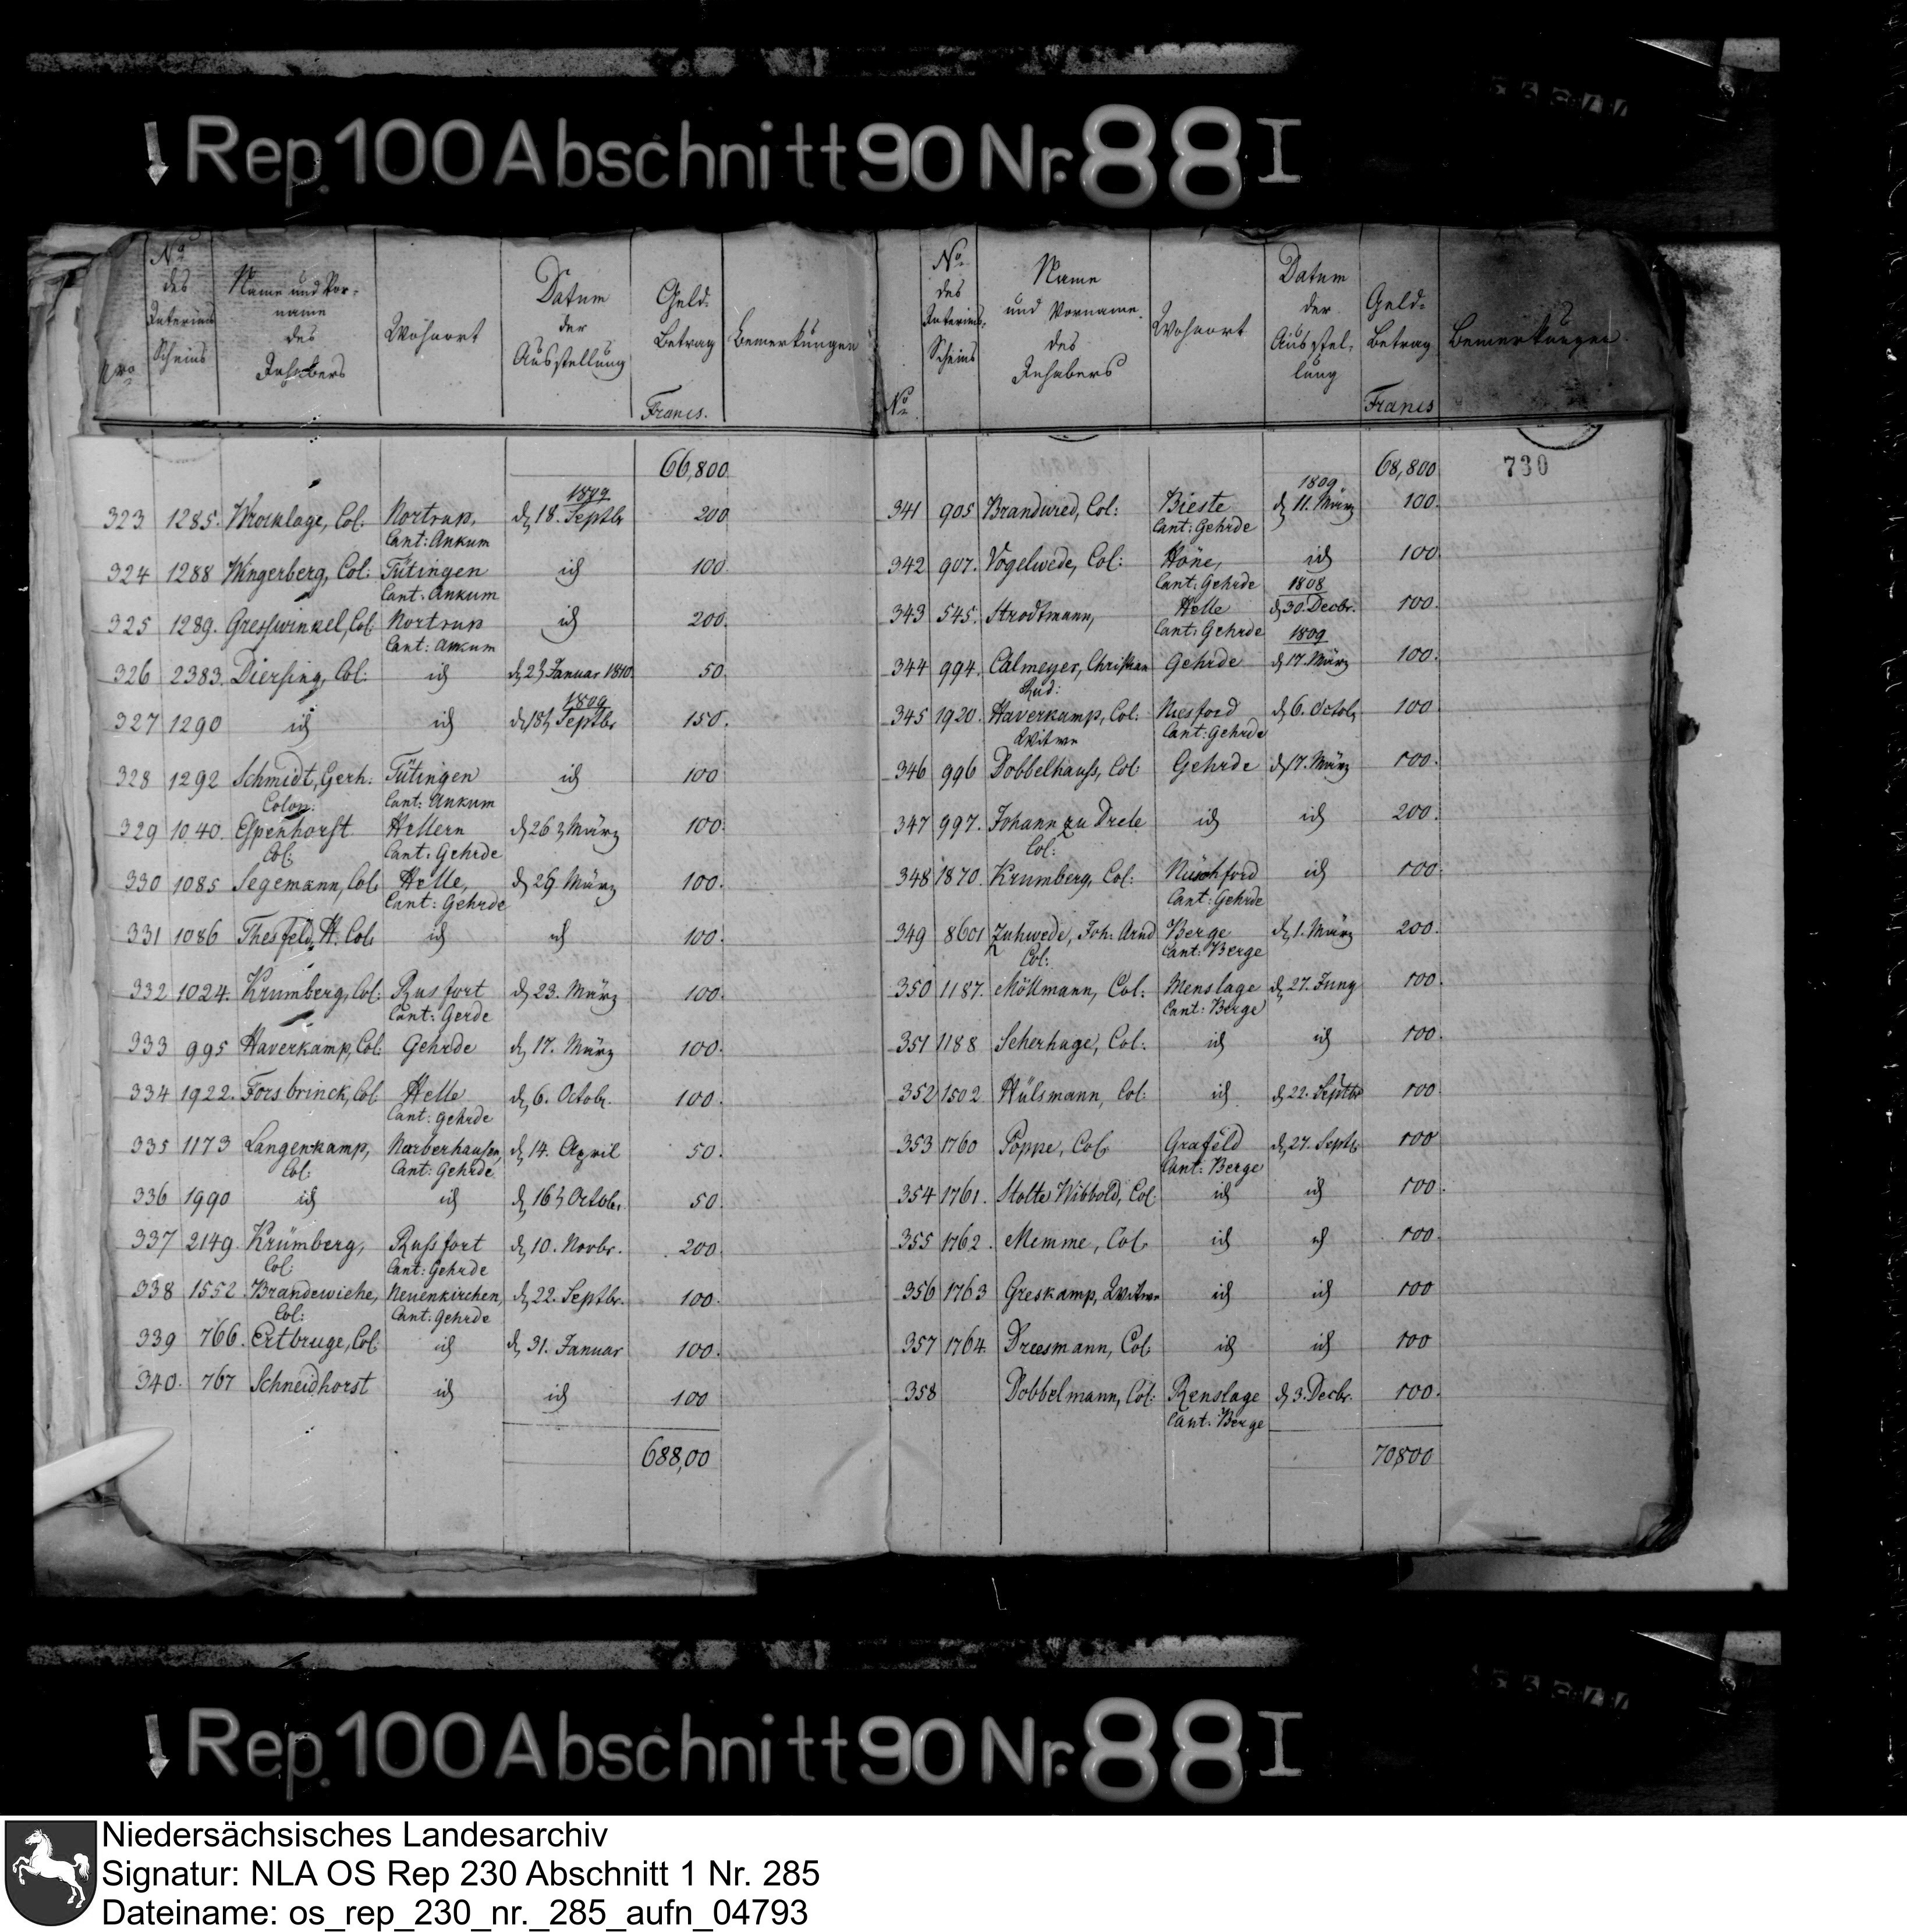 Rep. 100 Abschnitt 90 Nr. 88 I
Nro
No des Interims Scheins
Name und Vorname des Inhabers
Wohnort
Datum der Ausstellung
Geld-Betrag Francs.
Bemerkungen
No
No des Interims-Scheins
Name und Vorname des Inhabers
Wohnort
Datum der Ausstellung
Geld-Betrag Francs
Bemerkungen
66,800
1809
323 1285. Wrocklage, Col: Nortrup, d 18. Septbr 200
Cant: Ankum
324 1288 Wingerberg, Col: Tütingen id 100.
Cant: Ankum
325 1289. Gresswinkel, Col Nortrup id 200.
Cant: Ankum
326 2383. Diersing, Col: id Januar 1810. 50.
1809
327 1290 id id d 18t Septbr 150.
328 1292 Schmidt, Gerh: Tütingen id 100
Colon: Cant: Ankum
329 1040. Espenhorst Hellern d 26 März 100.
Col: Cant: Gehrde
330 1085 Segemann, Col. Helle, d 29 März 100.
Cant: Gehrde
331 1086 Thesfeld, H. Col. id id 100.
332 1024. Krumberg, Col: Rusfort d 23. März 100.
Cant: Gerde
333 995 Haverkamp, Col: Gehrde d 17. März 100.
334 1922. Forsbrinck, Col Helle d 6. Octobr. 100.
Cant: Gehrde
335 1173 Langenkamp, d 14. April 50.
Col: Cant: Gehrde
336 1990 id id d 16t Octobr. 50.
337 2149. Krümberg, Russfort d 10. Novbr. 200.
Col: Cant: Gehrde
338 1552 Brandewiehe, Neuenkirchen, d 22. Septbr. 100.
Col: Cant: Gehrde
339 766. Ertbruge, Col: id d 31. Januar 100.
340. 767 Schneidhorst id id 100
688,00
68,800
730
1809
341 905 Brandwred, Col: Bieste d 11. März 100.
Cant: Gehrde
342 907. Vogelwede, Col: Höne, id 100.
Cant: Gehrde 1808
343 545. Strodtmann, Helle d 30. Decbr. 100.
Cant: Gehrde 1809
344 994. Calmeyer, Christian Gehrde d 17. März 100.
Rud:
345 1920. Haverkamp, Col: d 6. Octob. 100
Witwe Cant: Gehrde
346 996 Dobbelhauss, Col: Gehrde d 17. März 100.
347 997. Johann zu Drele id id 200.
Col:
348 1870. Krumberg, Col: id 100.
Cant: Gehrde
349 8601 Zuhwede, Joh: Arnd Berge d 1. März 200.
Col: Cant: Berge
350 1187. Möllmann, Col: Menslage d 27. Juny 100.
Cant: Berge
351 1188 Scherhage, Col: id id 100.
352 1502 Hülsmann, Col: id d 22. Septbr 100
353 1760 Poppe, Col: Grafeld d 27. Septb. 100
Cant: Berge
354 1761. Stolte Wibbold, Col id id 100.
355 1762. Memme, Col. id id 100.
356 1763 Greskamp, Witwe id id 100
357 1764. Dreesmann, Col: id id 100
358 Dobbelmann, Col: Renslage d 3. Decbr. 100.
Cant: Berge
70800
Rep. 100 Abschnitt 90 Nr. 88 I
Niedersächsisches Landesarchiv
Signatur: NLA OS Rep 230 Abschnitt 1 Nr. 285
Dateiname: os_rep_230_nr._285_aufn_04793